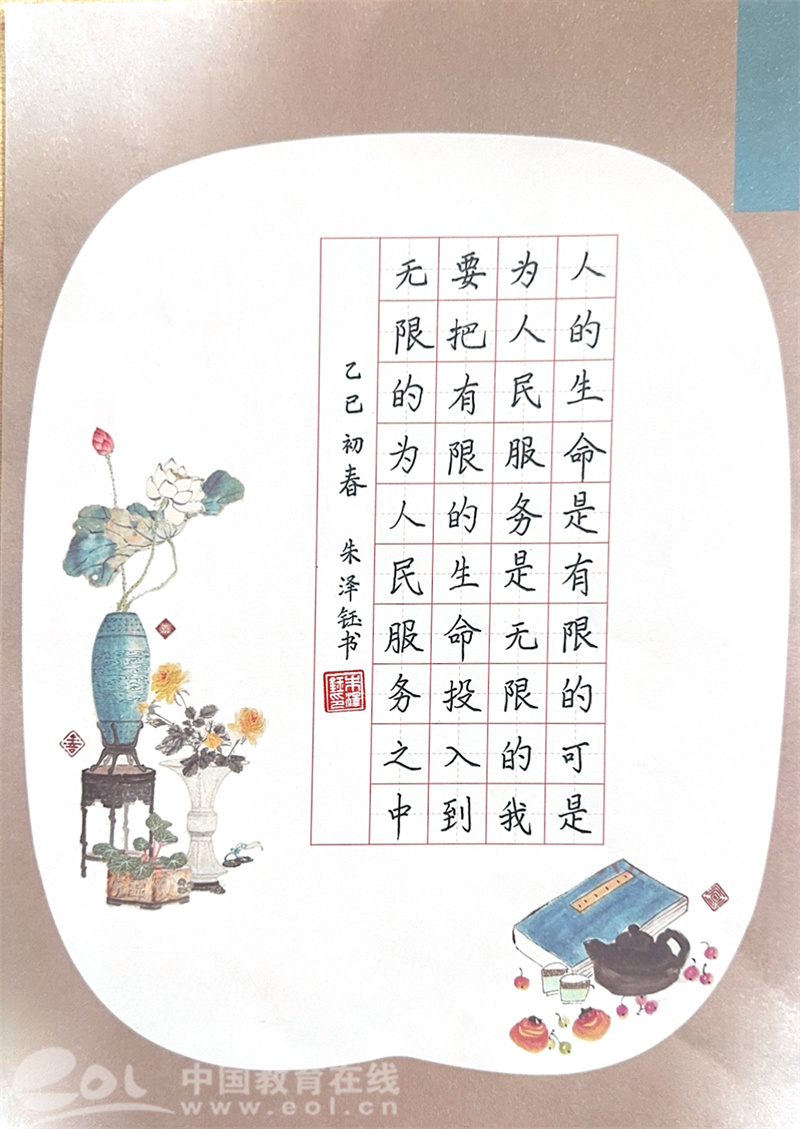 人的生命是有限的可是
为人民服务是无限的我
要把有限的生命投入到
无限的为人民服务之中
乙巳初春 朱泽钰书
eol 中国教育在线
www.eol.cn